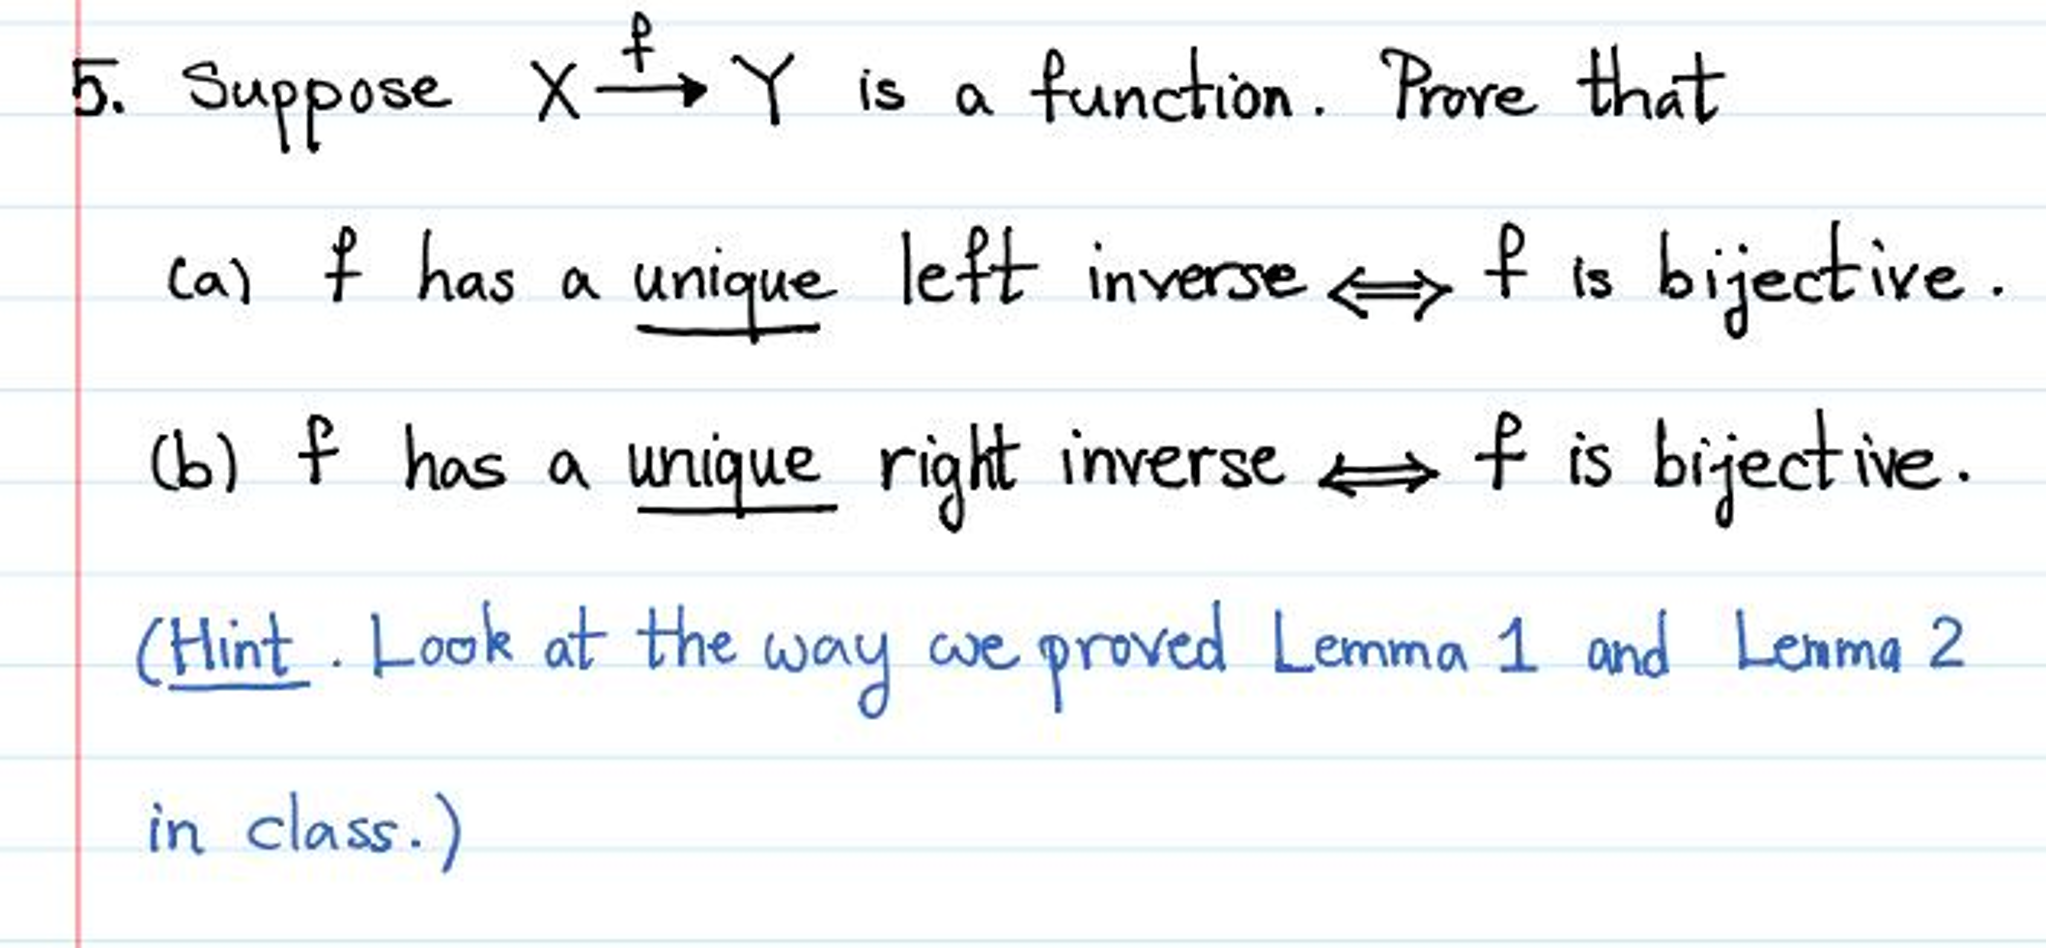 5. Suppose X →^f Y is a function. Prove that
(a) f has a unique left inverse ⟺ f is bijective.
(b) f has a unique right inverse ⟺ f is bijective.
(Hint. Look at the way we proved Lemma 1 and Lemma 2
in class.)